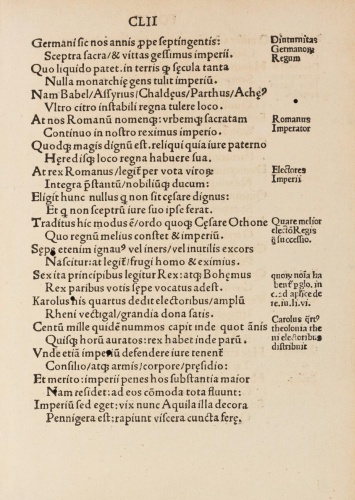 CLII
Germani sic nos annis ꝓpe septingentis:
Sceptra sacra/ & vittas gessimus imperii.
Quo liquido patet. in terris ꝙ sęcula tanta
Nulla monarchię gens tulit imperiū.
Nam Babel/Assyrius/Chaldęus/Parthus/Achęꝰ
Vltro citro instabili regna tulere loco.
At nos Romanū nomenqꝫ: vrbemqꝫ sacratam
Continuo in nostro reximus imperio.
Quodqꝫ magis dignū est. reliqui quia iure paterno
Hęredisqꝫ loco regna habuere sua.
At rex Romanus/legitʳ per vota viroꝝ
Integra p̄stantū/nobiliūqꝫ ducum:
Eligit hunc nullus ꝗ non sit cęsare dignus:
Et ꝗ non sceptrū iure suo ipse ferat.
Traditus hic modus ē/ordo quoqꝫ Cęsare Othone
Quo regnū melius constet & imperiū.
Sępe etenim ignauꝰ vel iners/vel inutilis excors
Nascitur: at legitʳ/frugi homo & eximius.
Sex ita principibus legitur Rex: atqꝫ Bohęmus
Rex paribus votis sępe vocatus adest.
Karolus his quartus dedit electoribus/amplū
Rheni vectigal/grandia dona satis.
Centū mille quidē nummos capit inde quot ānis
Quisqꝫ horū auratos: rex habet inde parū.
Vnde etiā imperiū defendere iure tenentʳ
Consilio/atqꝫ armis/corpore/pręsidio:
Et merito: imperii penes hos substantia maior
Nam residet: ad eos cōmoda tota fluunt:
Imperiū sed eget: vix nunc Aquila illa decora
Pennigera est: rapiunt viscera cuncta ferę.
Diuturnitas
Germanoꝝ
Regum
Romanus
Imperator
Electores
Imperii
Quare melior
electō Regis
ꝗ̄ successio.
quoꝝ nōīa ha
bentʳ
in
c.:
de
re. iu. li. vi.
Carolus ꝗrtꝰ
theolonia rhe
ni electoribus
distribuit